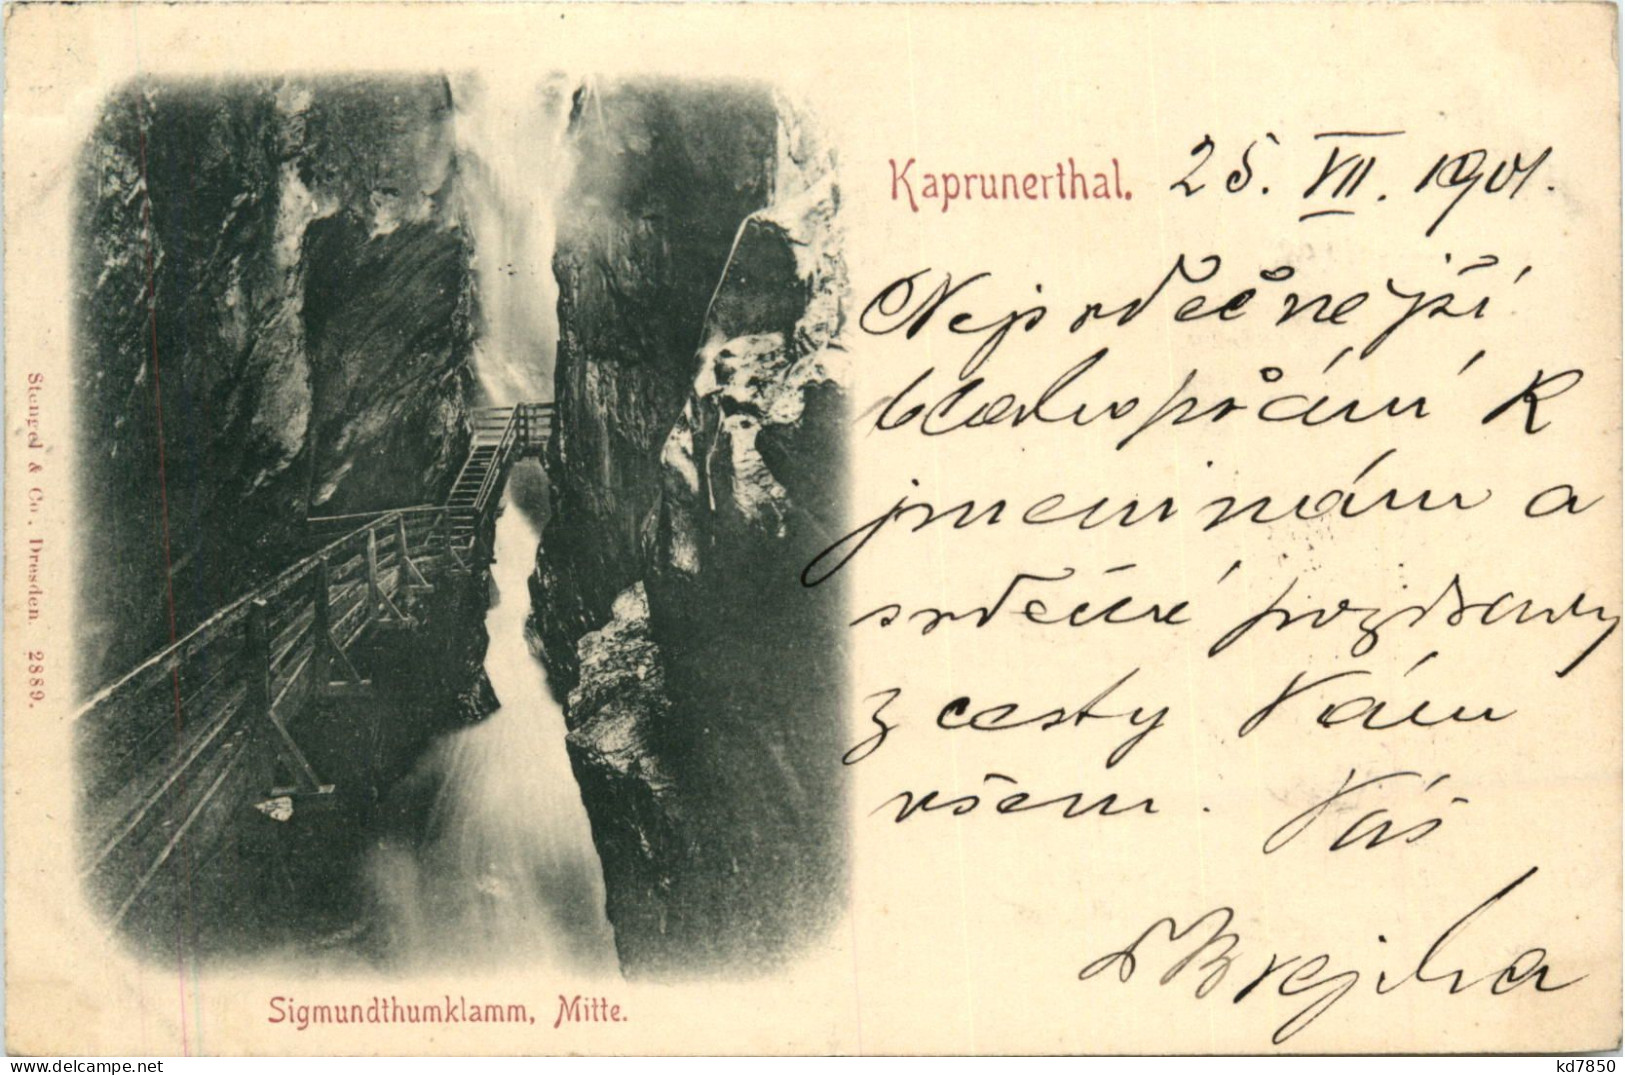 Kaprunerthal. 25. VII. 1901.
Nejsrdečnejší
blahopřání K
jmeninám a
srdečné pozdravy
z cesty Vám
všem. Váš
Brejcha
Sigmundthumklamm, Mitte.
Stengel & Co., Dresden. 2889.
kd7850